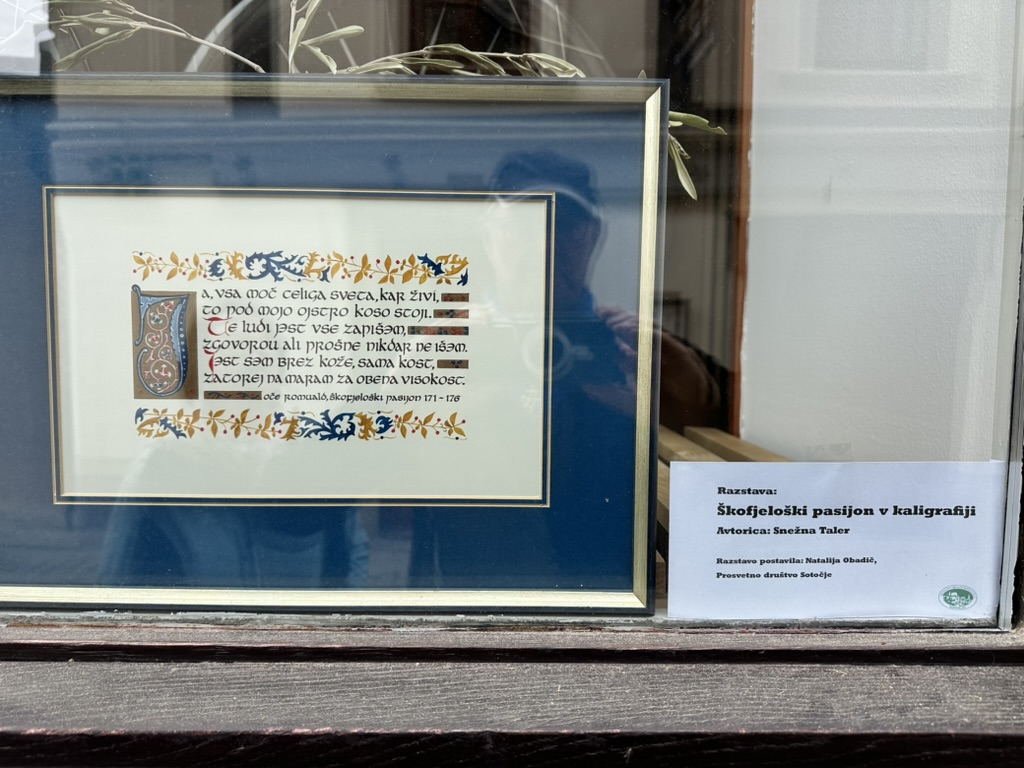 Ja, vsa moč celiga sveta, kar živi,
to pod mojo ojstro koso stoji.
Te ludi jəst vse zapišəm,
zgovorou ali prošne nikdar ne išəm.
Jəst səm brez kože, sama kost,
zatorej na maram za obena visokost.
oče Romuald, škofjeloški pasijon 171 - 176
Razstava:
Škofjeloški pasijon v kaligrafiji
Avtorica: Snežna Taler
Razstavo postavila: Natalija Obadič,
Prosvetno društvo Sotočje